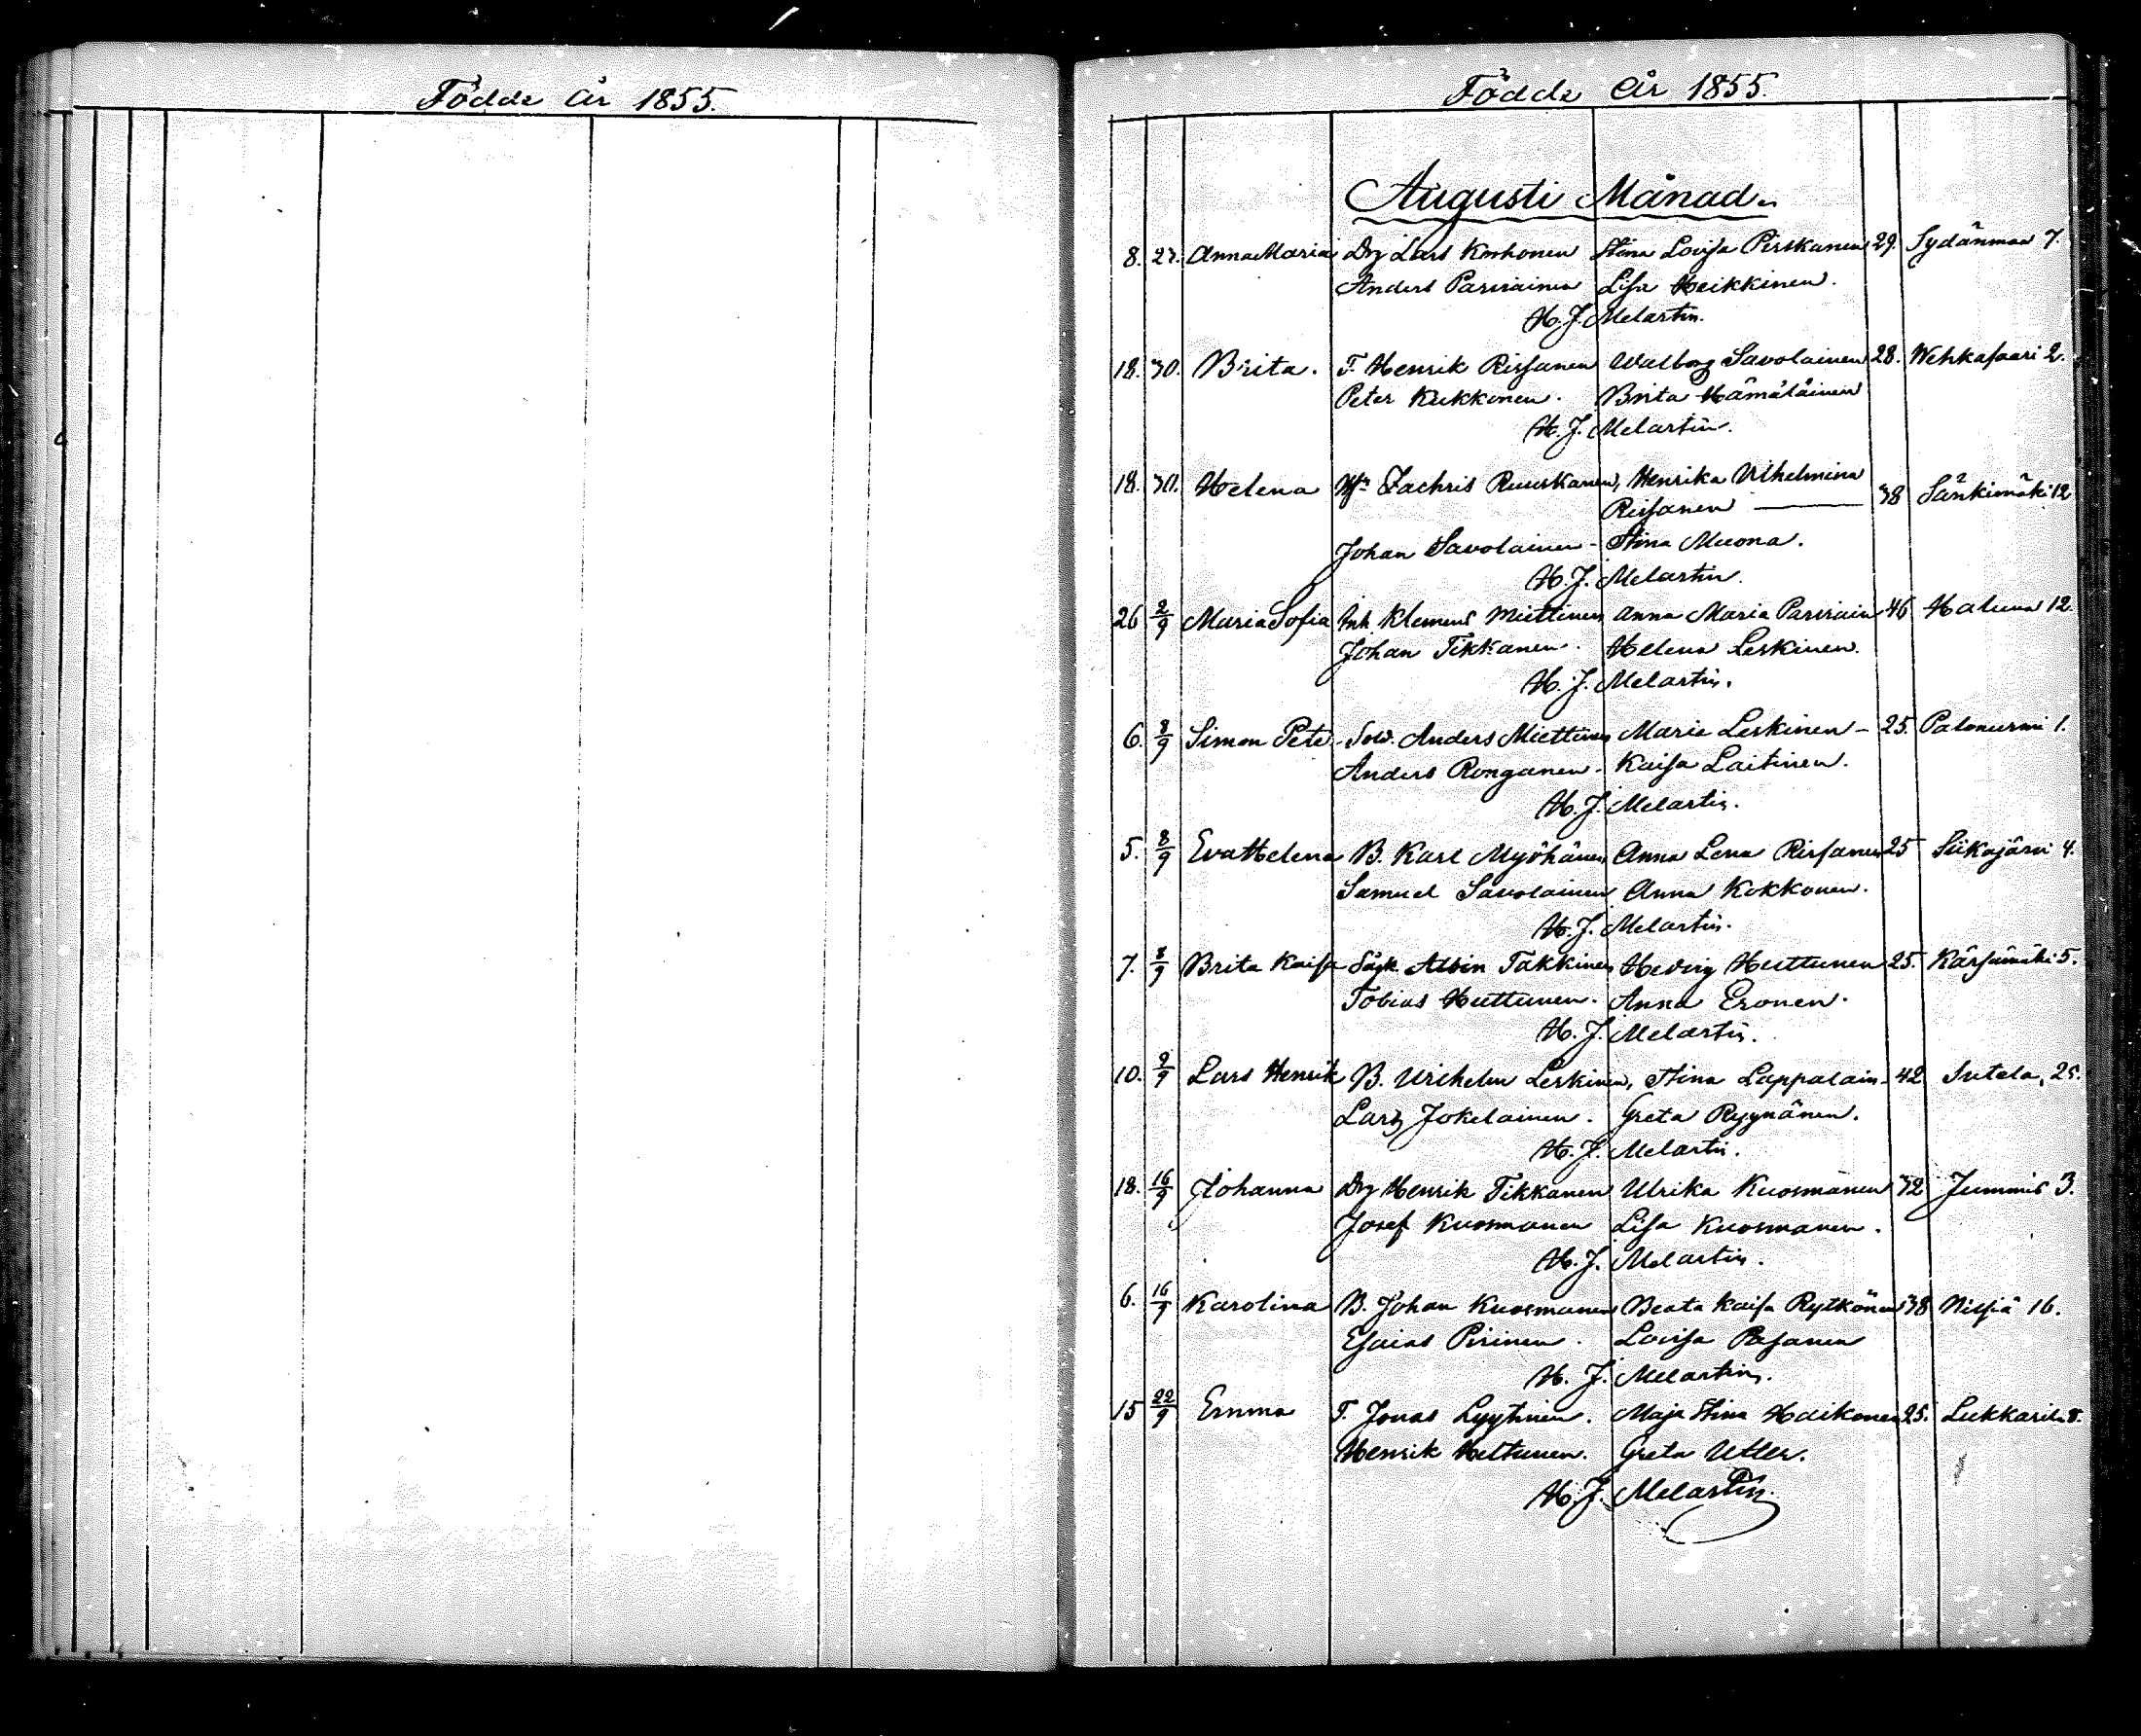 Födde År 1855.
Födde År 1855.
Augusti Månad.
8. 27. Anna Maria Drg Lars Korhonen Stina Lovisa Pirskanen 29. Sydänmaa 7.
Anders Parviainen Lisa Heikkinen.
H. J. Melartin.
18. 30. Brita. T. Henrik Rissanen Walborg Savolainen 28. Wehkasaari 2.
Peter Kukkonen. Brita Hämäläinen
H. J. Melartin.
18. 30. Helena Zachris Ruuskanen, Henrika Vilhelmina
Rissanen — 38 Sänkimäki 12
Johan Savolainen - Stina Muona.
H. J. Melartin.
26 2/9 Maria Sofia Inh Klemens Miettinen Anna Maria Parviain 46 Haluna 12.
Johan Tikkanen. Helena Leskinen.
H. J. Melartin.
6. 8/9 Simon Peter Anders Miettinen Maria Leskinen - 25. Palonurmi 1.
Anders Ronganen. Kaisa Laitinen.
H. J. Melartin.
5. 8/9 Eva Helena B. Karl Myöhänen Anna Lena Rissanen 25 Siikajärvi 4.
Samuel Savolainen Anna Kokkonen.
H. J. Melartin.
7. 8/9 Brita Kaisa Albin Takkinen Hedvig Huttunen 25. Kärsämäki 5.
Tobias Huttunen. Anna Eronen.
H. J. Melartin.
10. 9/9 Lars Henrik B. Vilhelm Leskinen, Stina Lappalain. 42 Sutela, 25.
Lars Jokelainen. Greta Ryynänen.
H. J. Melartin.
18. 16/9 Johanna Drg Henrik Tikkanen Ulrika Kuosmanen 32 Jummis 3.
Josef Kuosmanen Lisa Kuosmanen.
H. J. Melartin.
6. 16/9 Karolina B. Johan Kuosmanen Beata Kaisa Rytkönen 38 Nilsiä 16.
Esaias Pirinen. Lovisa Pasanen
H. J. Melartin.
15 22/9 Emma T. Jonas Lyytinen. Maja Stina Haikonen 25. Lukkarila 8.
Henrik Huttunen. Greta Utter.
H. J. Melartin.